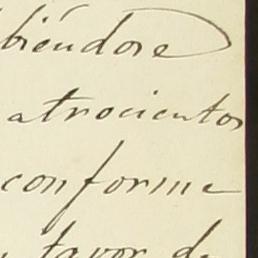 biéndose
atrocientos
conforme
favor de